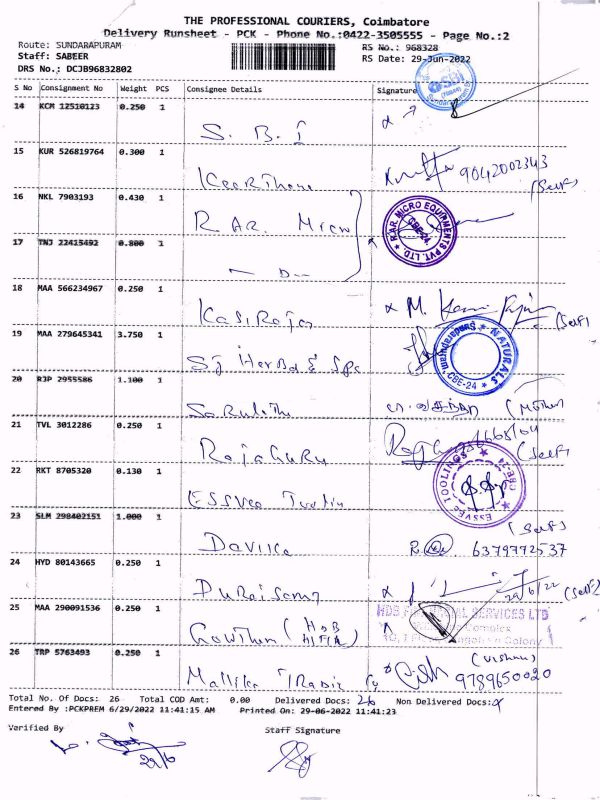 THE PROFESSIONAL COURIERS, Coimbatore
Delivery Runsheet - PCK - Phone No.:0422-3505555 - Page No.:2
Route: SUNDARAPURAM RS No.: 968328
Staff: SABEER RS Date: 29-Jun-2022
DRS No.: DCJB96832802
S No Consignment No Weight PCS Consignee Details Signature
SBI
14 KCM 12510123 0.250 1
S. B. I
15 KUR 526819764 0.300 1
Keerthana 9042002343
(Self)
16 NKL 7903193 0.430 1
R. AR. Micro
R.AR. MICRO EQUIPMENTS PVT. LTD. CBE-24
17 TNJ 22415492 0.800 1
18 MAA 566234967 0.250 1
Kasiraja M.
(Self)
19 MAA 279645341 3.750 1
NATURALS CBE-24
SJ Herbal & Spc
20 RJP 2955586 1.100 1
(Mother)
21 TVL 3012286 0.250 1
RajaGuru
(Self)
22 RKT 8705320 0.130 1
ESSVEE TOOLINGS CBE-24
ESSVee Toolin
23 SLM 298402151 1.000 1
(Self)
Devika 6379772537
24 HYD 80143665 0.250 1
Duraisamy 29/6/22 (Self)
25 MAA 290091536 0.250 1
HDB FINANCIAL SERVICES LTD
Complex
Colony
Gowtham (HDB
26 TRP 5763493 0.250 1
Mallika Tradi Cy 9789650020
Total No. Of Docs: 26 Total COD Amt: 0.00 Delivered Docs: 26 Non Delivered Docs:
Entered By :PCKPREM 6/29/2022 11:41:15 AM Printed On: 29-06-2022 11:41:23
Verified By Staff Signature
29/6